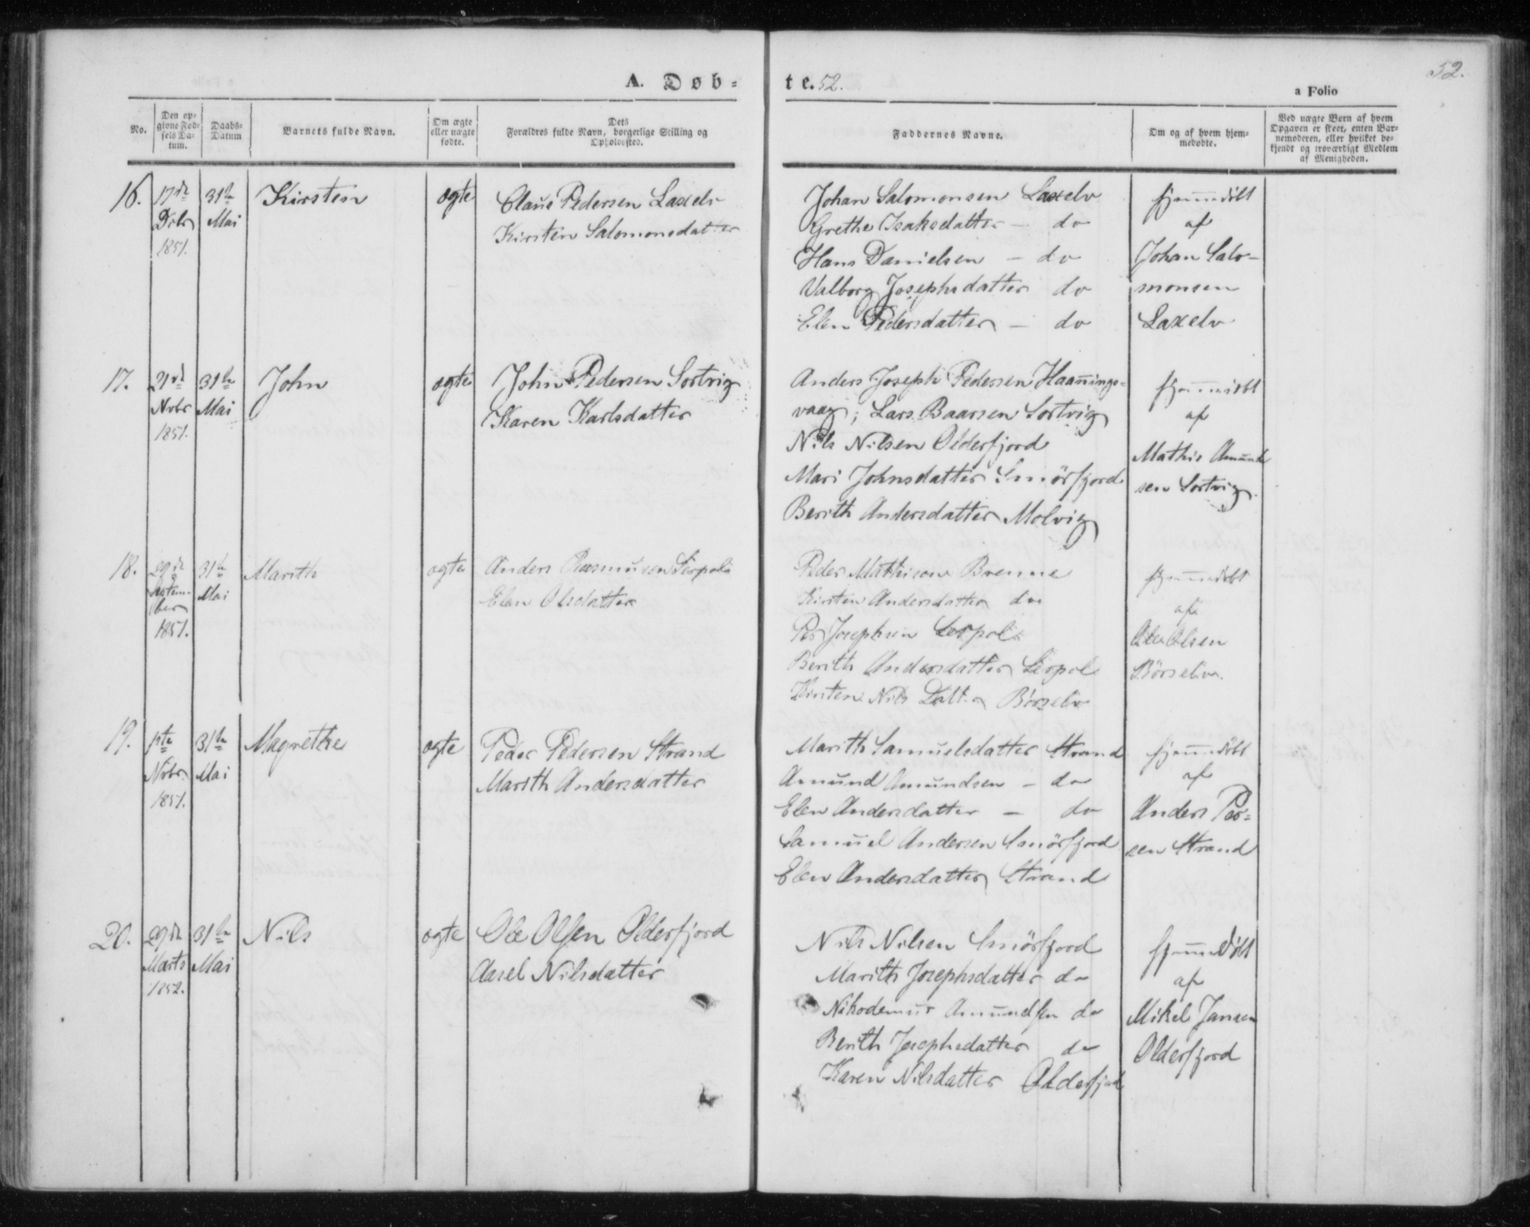 52.
A. Døb-te. 52.
a Folio
No.
Den opgivne Fødsels Datum.
Daabs-Datum
Barnets fulde Navn.
Om ægte eller uægte fødte.
Dets Forældres fulde Navn, borgerlige Stilling og Opholdssted.
Faddernes Navne.
Om og af hvem hjemmedøbte.
Ved uægte Børn af hvem Opgaven er skeet, enten Barnemoderen, eller hvilket bekjendt og troværdigt Medlem af Menigheden.
16. 17de 31te Kirsten ægte Claus Pedersen Laxelv Johan Salomonsen Laxelv hjemmedøbt
Mai Kirsten Salomonsdatter Grethe Isaksdatter - do af
1851. Hans Danielsen - do Johan Salo-
Valborg Josephsdatter do monsen
Elen Pedersdatter - do Laxelv
17. 21de 31te John ægte John Pedersen Sortvig Anders Joseph Pedersen Haanings- hjemmedøbt
Novbr Mai Karen Karlsdatter vaag; Lars Baarsen Sortvig af
1851. Nils Nilsen Olderfjord Mathis Amund-
Mari Johnsdatter Smörfjord sen Sortvig.
Berith Andersdatter Molvig
18. 29de 31te Marith ægte Anders Rasmusen Leirpols Peder Mathisen Brenne hjemmedøbt
Septem- Mai Elen Olsdatter Kirsten Andersdatter do af
ber Per Josephsen Leirpols Ole Olsen
1851. Berith Andersdatter Leirpol Börselv
Kirsten Nils Datter Börselv
19. 1ste 31te Magrethe ægte Peder Pedersen Strand Marith Samuelsdatter Strand hjemmedøbt
Novbr Mai Marith Andersdatter Amund Amundsen - do af
1851. Elen Andersdatter - do Anders Per-
Samuel Andersen Smörfjord sen Strand
Elen Andersdatter Strand
20. 29de 31te Nils ægte Ole Olsen Olderfjord Nils Nilsen Smörfjord hjemmedøbt
Marts Mai Aasel Nilsdatter Marith Josephsdatter do af
1852. Nikodemus Amundsen do Mikel Jansen
Berith Josephsdatter do Olderfjord
Karen Nilsdatter Olderfjord